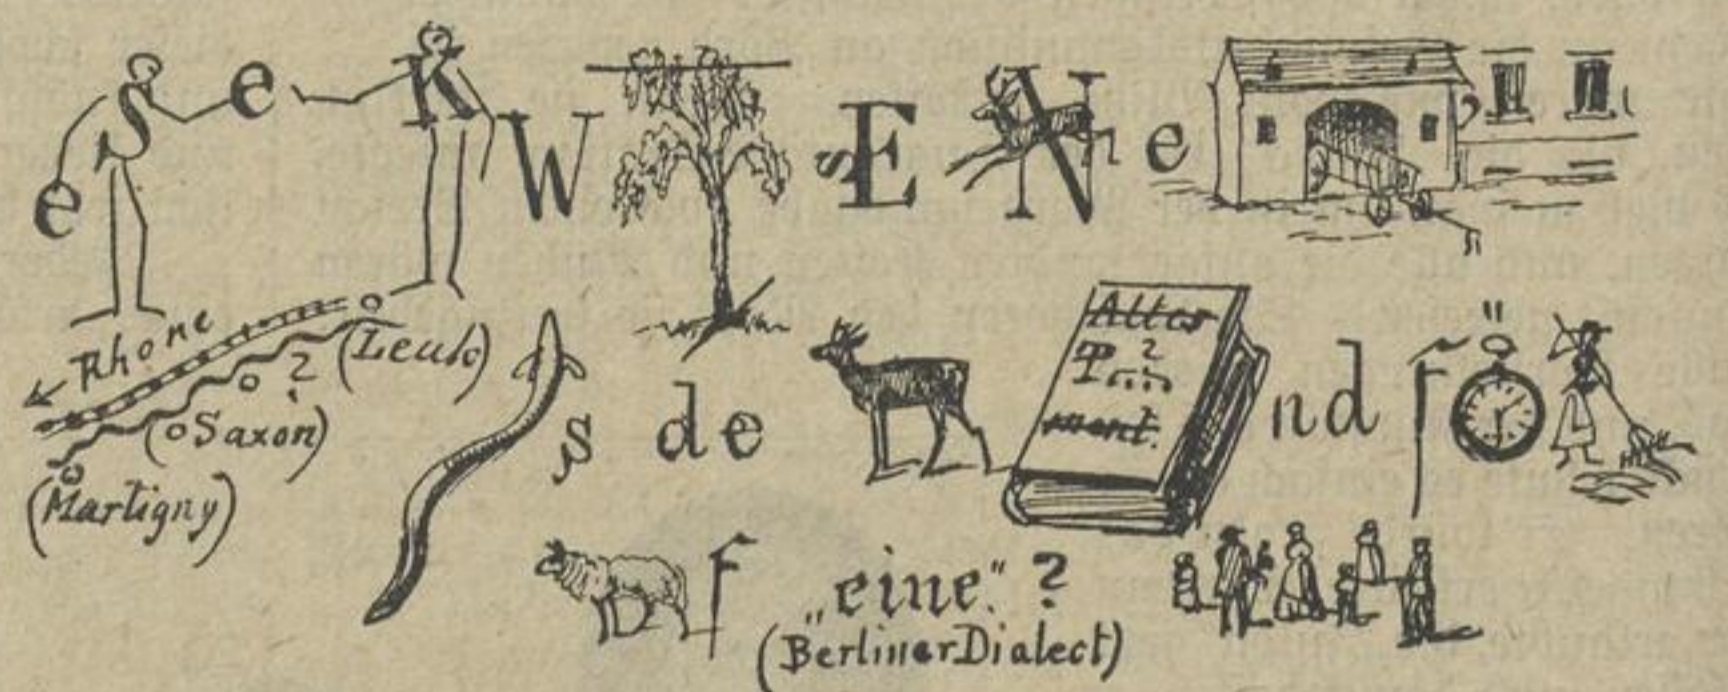 e S e K W sE N e ,
Rhone
(Leuk)
?
(Saxon)
(Martigny)
s de Altes
T...?
ment.
nd f
f „eine“. ?
(Berliner Dialect)